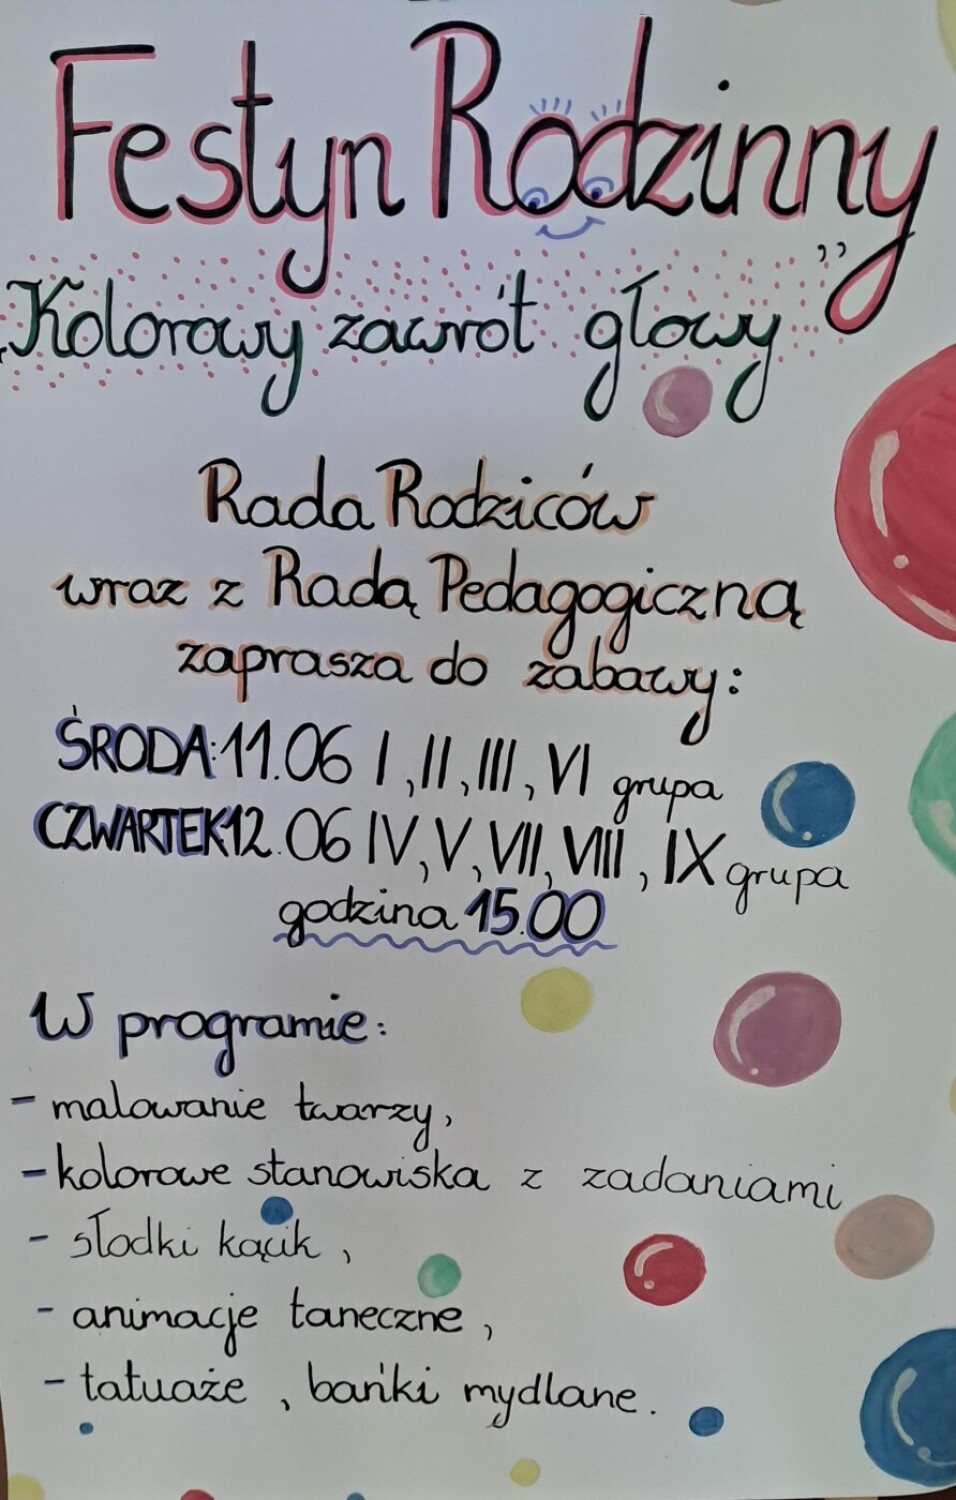 Festyn Rodzinny
„Kolorowy zawrót głowy”
Rada Rodziców
wraz z Radą Pedagogiczną
zaprasza do zabawy:
ŚRODA: 11.06 I, II, III, VI grupa
CZWARTEK 12.06 IV, V, VII, VIII, IX grupa
godzina 15.00
W programie:
- malowanie twarzy,
- kolorowe stanowiska z zadaniami
- słodki kącik,
- animacje taneczne,
- tatuaże, bańki mydlane.